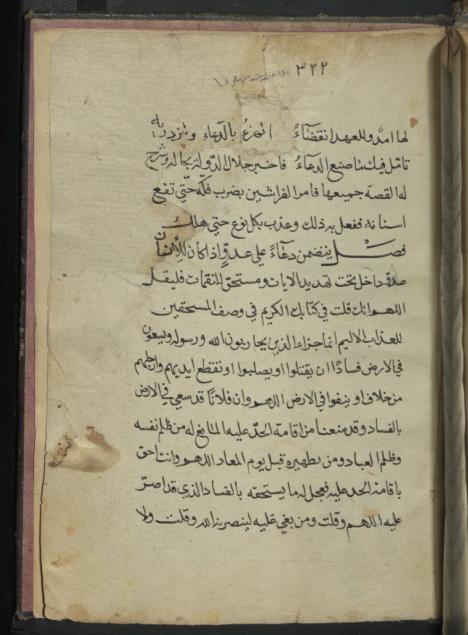 ٣٢٢
لها امد وللعمد انقضاء اتهزء بالدعاء وتزدريه
تامل فيك ما صنع الدعاء فاخبر جلال الدولة بحاله وشرح
له القصة جميعها فامر الفراشين بضرب فكه حتى تقع
اسنانه ففعل به ذلك وعذب بكل نوع حتى هلك
فصل يتضمن دعاء على عدو اذا كان للانسان
عدو داخل تحت تهديد الايات ومستحق النقمات فليقل
اللهم انك قلت في كتابك الكريم في وصف المستحقين
للعذاب الاليم انما جزاء الذين يحاربون الله ورسوله ويسعون
في الارض فسادا ان يقتلوا او يصلبوا او تقطع ايديهم وارجلهم
من خلاف او ينفوا في الارض اللهم وان فلانا قد سعى في الارض
بالفساد وقد منعنا من اقامة الحد عليه المانع له من ظلم نفسه
وظلم العباد ومن تطهيره قبل يوم المعاد اللهم وانت احق
باقامة الحد عليه فعجل له ما يستحقه بالفساد الذي قد اصر
عليه اللهم وقلت ومن بغي عليه لينصرنه الله وقلت ولا